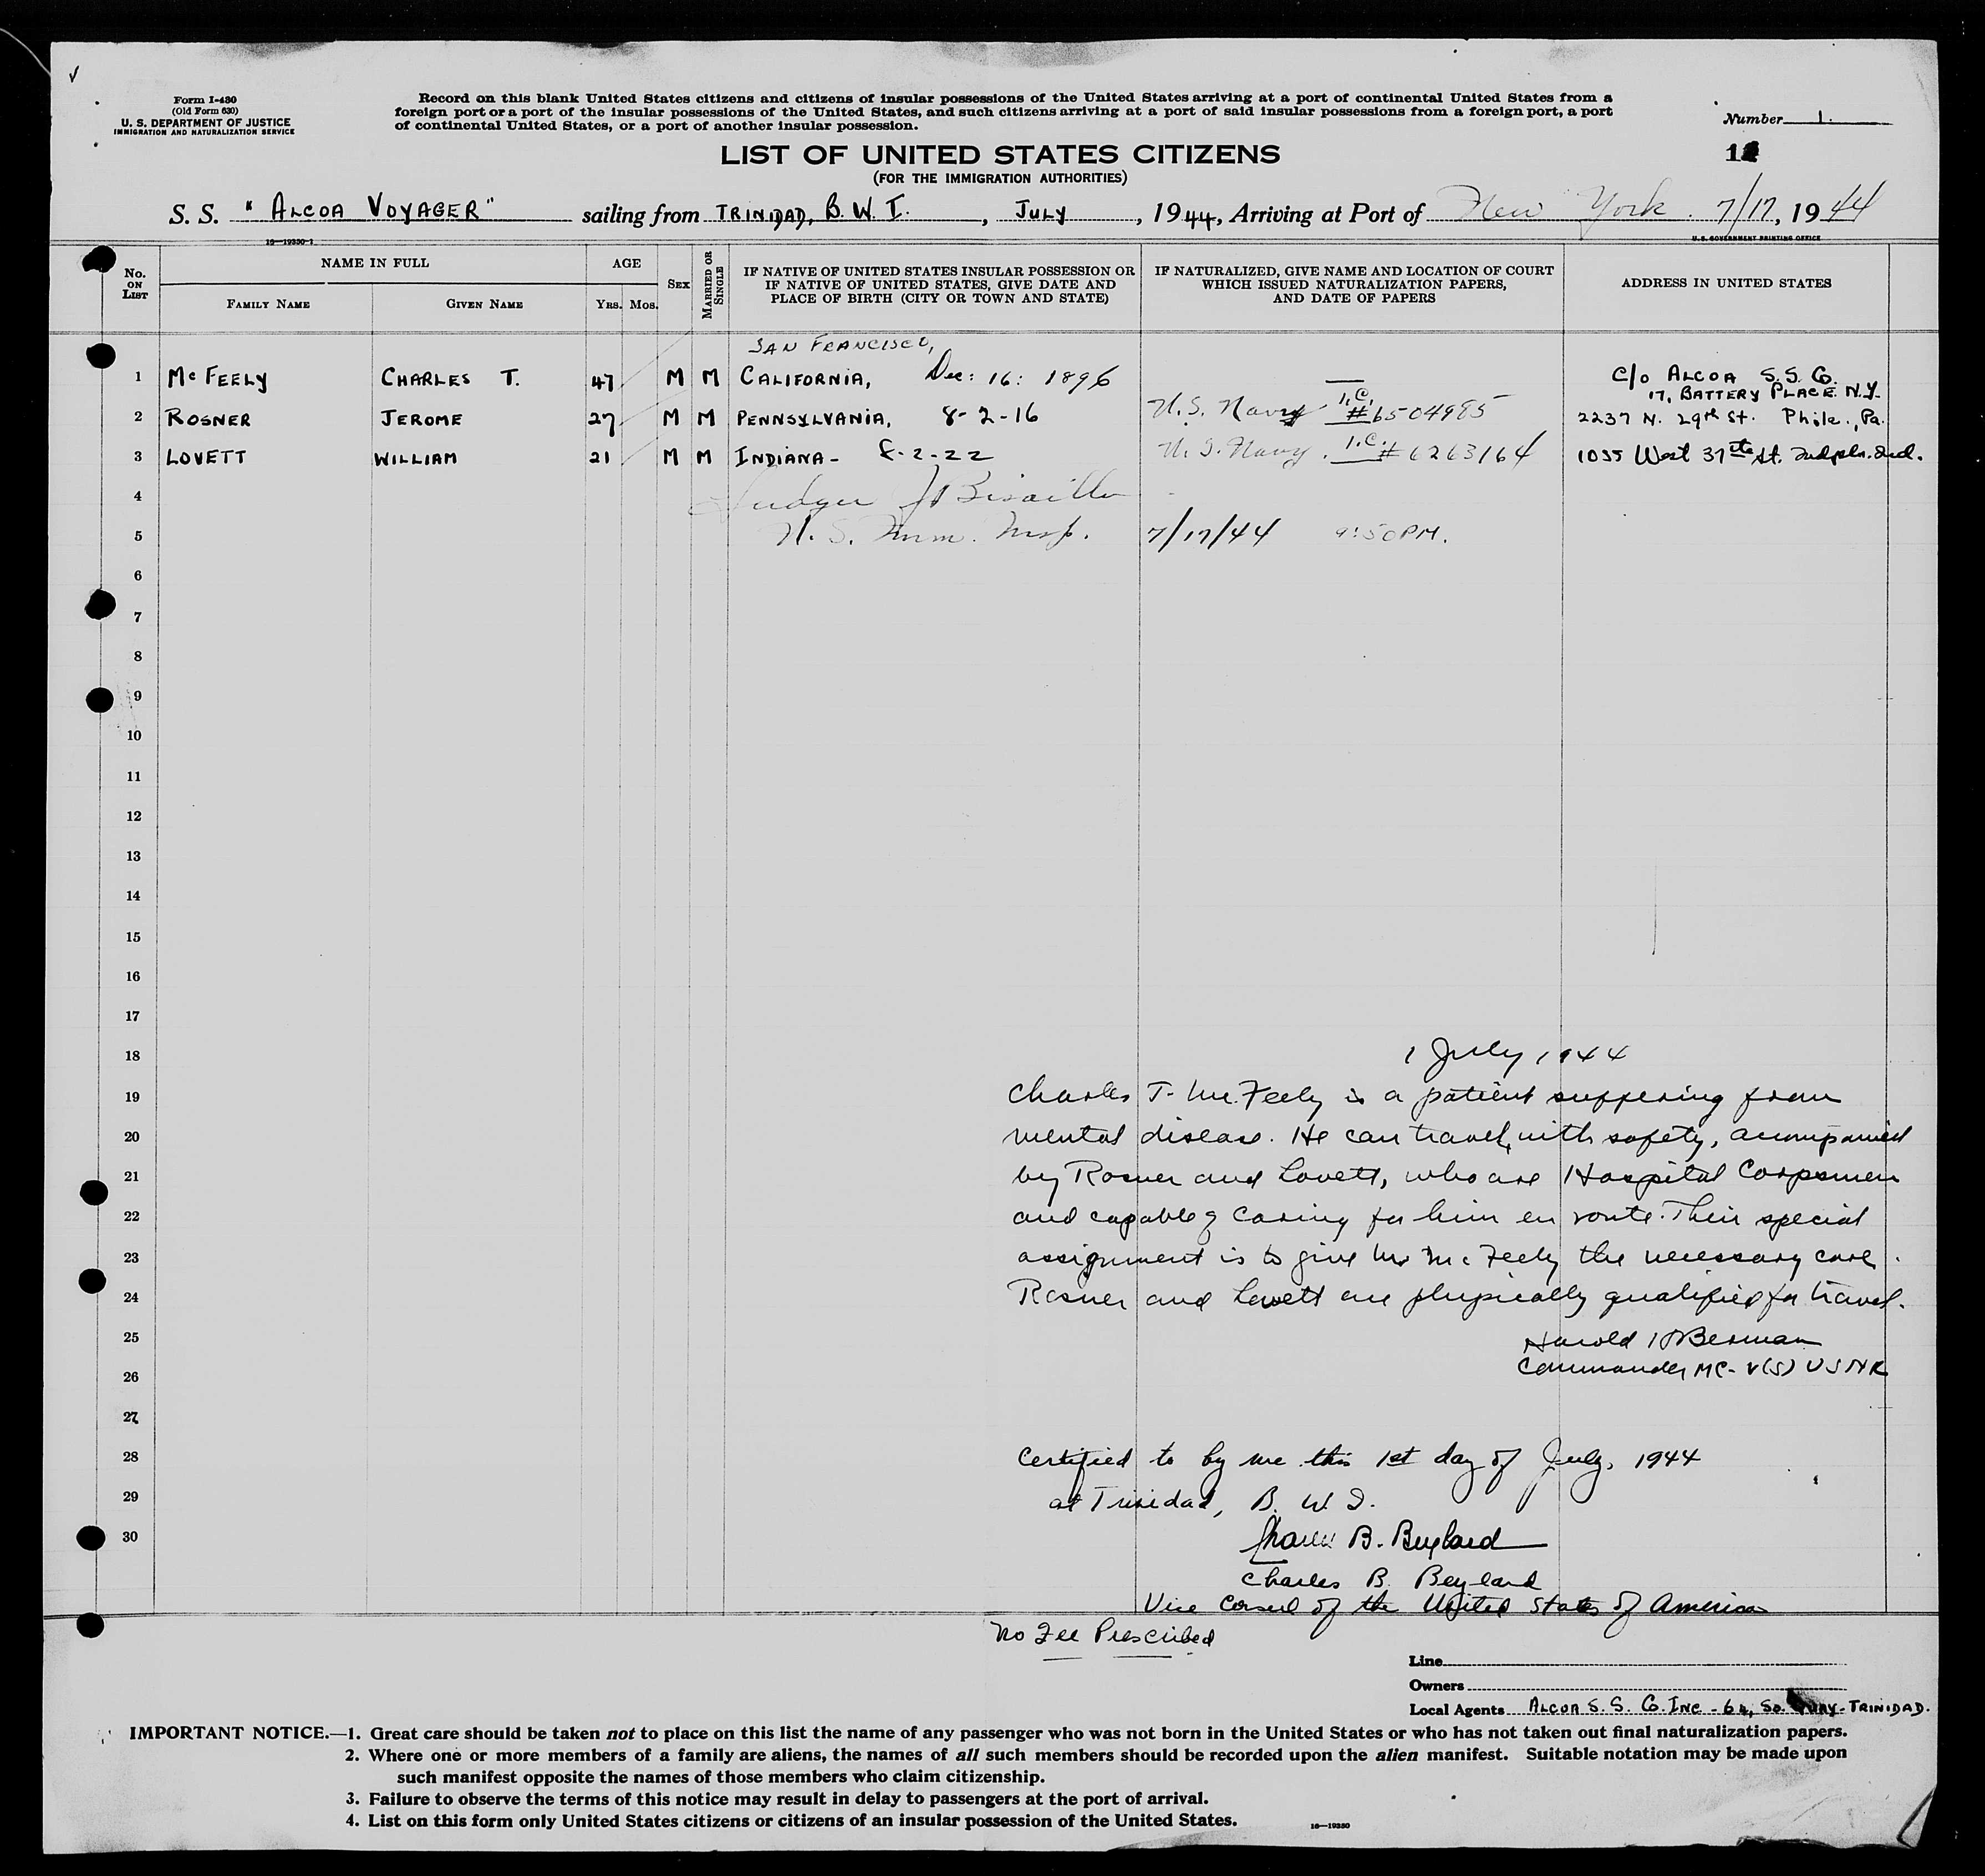 Form I-430
(Old Form 630)
U. S. DEPARTMENT OF JUSTICE
IMMIGRATION AND NATURALIZATION SERVICE
Record on this blank United States citizens and citizens of insular possessions of the United States arriving at a port of continental United States from a
foreign port or a port of the insular possessions of the United States, and such citizens arriving at a port of said insular possessions from a foreign port, a port
of continental United States, or a port of another insular possession.
Number 1.
LIST OF UNITED STATES CITIZENS
(FOR THE IMMIGRATION AUTHORITIES)
S. S. "ALCOA VOYAGER" sailing from TRINIDAD, B. W. I., JULY, 1944, Arriving at Port of New York. 7/17, 1944
16—19350-1
U. S. GOVERNMENT PRINTING OFFICE
No. ON LIST
NAME IN FULL
FAMILY NAME
GIVEN NAME
AGE
YRS. MOS.
SEX
MARRIED OR SINGLE
IF NATIVE OF UNITED STATES INSULAR POSSESSION OR
IF NATIVE OF UNITED STATES, GIVE DATE AND
PLACE OF BIRTH (CITY OR TOWN AND STATE)
IF NATURALIZED, GIVE NAME AND LOCATION OF COURT
WHICH ISSUED NATURALIZATION PAPERS,
AND DATE OF PAPERS
ADDRESS IN UNITED STATES
SAN FRANCISCO,
1 McFEELY CHARLES T. 47 M M CALIFORNIA, Dec: 16: 1896 — C/o ALCOA S. S. Co.
17, BATTERY PLACE. N.Y.
2 ROSNER JEROME 27 M M PENNSYLVANIA, 8-2-16 U.S. Navy I.C. #6504985 2237 N. 29th St. Phila., Pa.
3 LOVETT WILLIAM 21 M M INDIANA- 8-2-22 U.S. Navy. I.C. #6263164 1035 West 37th St. Indpls. Ind.
4
5 U. S. Imm. Insp. 7/17/44 9:50 PM.
6
7
8
9
10
11
12
13
14
15
16
17
18 1 July 1944
19 Charles T. McFeely is a patient suffering from
20 mental disease. He can travel, with safety, accompanied
21 by Rosner and Lovett, who are Hospital Corpsmen
22 and capable of caring for him en route. Their special
23 assignment is to give Mr McFeely the necessary care.
24 Rosner and Lovett are physically qualified for travel.
25 Harold Berman
26 Commander MC-V(S) USNR
27
28 Certified to by me this 1st day of July, 1944
29 at Trinidad, B. W. I.
30 Charles B. Beylard
Charles B. Beylard
Vice Consul of the United States of America
No Fee Prescribed
Line
Owners
Local Agents ALCOA S. S. Co. INC - So. QUAY-TRINIDAD.
IMPORTANT NOTICE.—1. Great care should be taken not to place on this list the name of any passenger who was not born in the United States or who has not taken out final naturalization papers.
2. Where one or more members of a family are aliens, the names of all such members should be recorded upon the alien manifest. Suitable notation may be made upon
such manifest opposite the names of those members who claim citizenship.
3. Failure to observe the terms of this notice may result in delay to passengers at the port of arrival.
4. List on this form only United States citizens or citizens of an insular possession of the United States.
16—19350